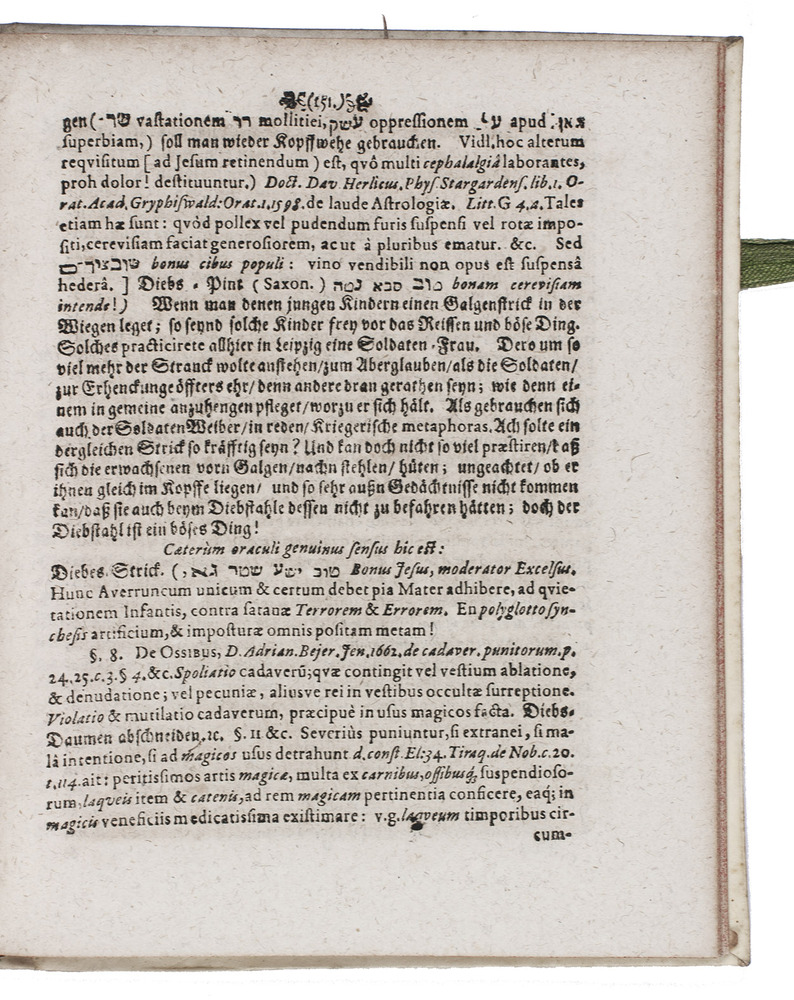 (151.)
gen (שר- vastationem רך mollitiei, עשק oppressionem apud גאון
superbiam,) soll man wieder Kopffwehe gebrauchen. Vidi, hoc alterum
reqvisitum [ad Jesum retinendum) est, qvô multi cephalalgiâ laborantes,
proh dolor! destituuntur.) Doct. Dav. Herlicus. Phys. Stargardens. lib. 1. O-
rat. Acad. Gryphiswald: Orat. 1. 1598. de laude Astrologiæ. Litt. G 4. a. Tales
etiam hæ sunt: qvòd pollex vel pudendum furis suspensi vel rotæ impo-
siti, cerevisiam faciat generosiorem, ac ut à pluribus ematur. &c. Sed
bonus cibus populi: vino vendibili non opus est suspensâ
hederâ. ] Diebs-Pint (Saxon.) טוב סבא נטה bonam cerevisiam
intende!) Wenn man denen jungen Kindern einen Galgenstrick in der
Wiegen leget; so seynd solche Kinder frey vor das Reissen und böse Ding.
Solches practicirete allhier in Leipzig eine Soldaten-Frau. Dero um so
viel mehr der Strauck wolte anstehen/zum Aberglauben/als die Soldaten/
zur Erhenckunge öffters ehr/denn andere dran gerathen seyn; wie denn ei-
nem in gemeine anzuhengen pfleget/worzu er sich hält. Als gebrauchen sich
auch der Soldaten Weiber/in reden/Kriegerische metaphoras. Ach solte ein
dergleichen Strick so kräfftig seyn? Und kan doch nicht so viel præstiren/daß
sich die erwachsenen vorn Galgen/nachn stehlen/hüten; ungeachtet/ob er
ihnen gleich im Kopffe liegen/ und so sehr außn Gedächtnisse nicht kommen
kan/daß sie auch beym Diebstahle dessen nicht zu befahren hätten; doch der
Diebstahl ist ein böses Ding!
Cæterùm oraculi genuinus sensus hic est:
Diebes-Strick. (טוב ישע שטר גאה, Bonus Jesus, moderator Excelsus.
Hunc Averruncum unicum & certum debet pia Mater adhibere, ad qvie-
tationem Infantis, contra satanæ Terrorem & Errorem. En polyglotto syn-
chesis artificium, & imposturæ omnis positam metam!
§. 8. De Ossibus, D. Adrian. Bejer. Jen. 1662. de cadaver. punitorum. p.
24. 25. c. 3. § 4. &c. Spoliatio cadaverũ; qvæ contingit vel vestium ablatione,
& denudatione; vel pecuniæ, aliusve rei in vestibus occultæ surreptione.
Violatio & mutilatio cadaverum, præcipuè in usus magicos facta. Diebs-
Daumen abschneiden. ꝛc. §. 11 &c. Severiùs puniuntur, si extranei, si ma-
lâ intentione, si ad magicos usus detrahunt d. const. El: 34. Tiraq. de Nob. c. 20.
t. 114. ait: peritissimos artis magicæ, multa ex carnibus, ossibusq; suspendioso-
rum, laqveis item & catenis, ad rem magicam pertinentia conficere, eaq; in
magicis veneficiis medicatissima existimare: v. g. laqveum timporibus cir-
cum-